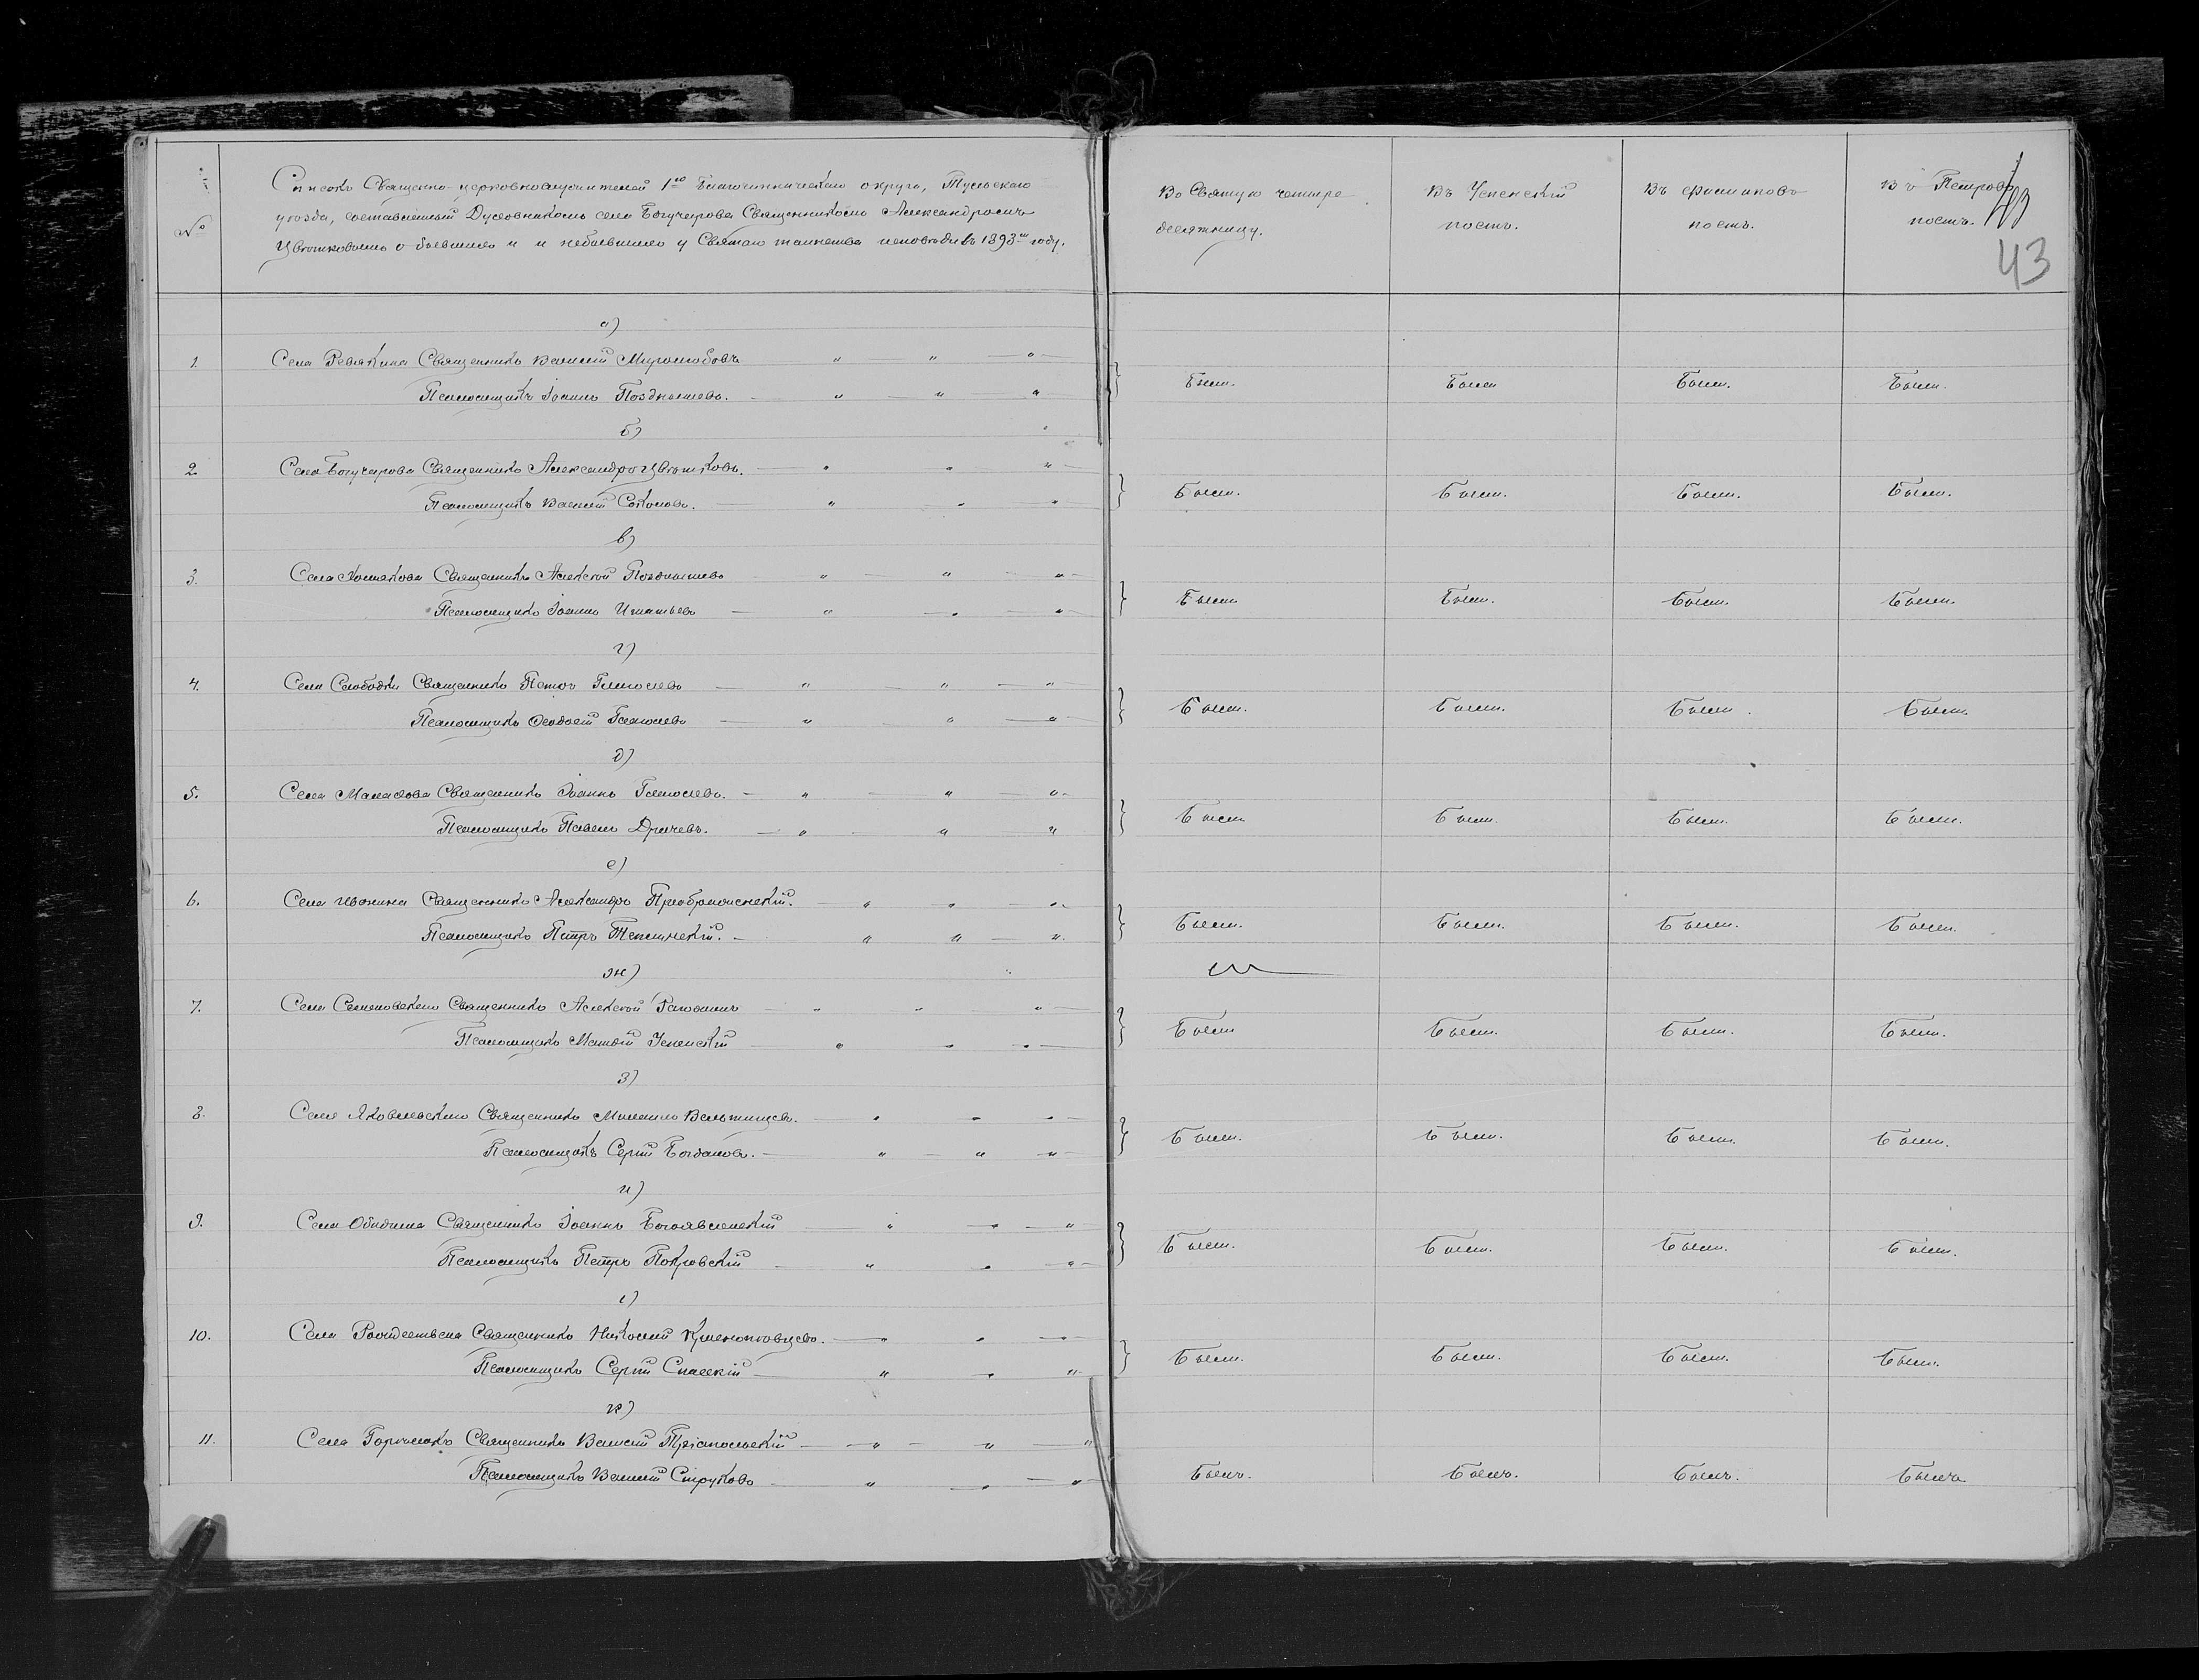 №
Списокъ Священно-церковнослужителей 1го Благочинническаго округа, Тульскаго
уѣзда, составленный Духовникомъ села Богучарова Священникомъ Александромъ
Цвѣтковымъ о бывшихъ и и небывшихъ у Святаго таинства исповѣди въ 1893м году.
Во Святую четыре
десятницу.
Въ Успенскій
постъ.
Въ Филиповъ
постъ.
Въ Петровъ
постъ.
43
43
а)
1. Села Ревякина Священникъ Василій Миролюбовъ " " "
Псаломщикъ Іоаннъ Позднышевъ. " " " } Были. Были Были. Были.
б)
2. Села Богучарова Священникъ Александръ Цвѣтковъ. " " "
Псаломщикъ Василій Соколовъ. " " " } Были. Были. Были. Были.
в)
3. Села Хомякова Священникъ Алексѣй Позднышевъ " " "
Псаломщикъ Іоаннъ Игнатьевъ " " " } Были Были. Были. Были.
г)
4. Села Слободки Священникъ Петръ Глаголевъ " " "
Псаломщикъ Глаголевъ " " " } Были. Были. Были. Были.
д)
5. Села Малахова Священникъ Іоаннъ Глаголевъ. " " "
Псаломщикъ Павелъ Драчевъ. " " " } Были Были. Были. Были.
е)
6. Села Ивонина Священникъ Александръ Преображенскій. " " "
Псаломщикъ Петръ " " " } Были. Были. Были. Были.
ж)
7. Села Семеновскаго Священникъ Алексѣй " " "
Псаломщикъ Матвій Успенскій " " " } Были Были. Были. Были.
з)
8. Села Яковлевскаго Священникъ Михаилъ Вельтищевъ. " " "
Псаломщикъ Сергій Богдановъ. " " " } Были. Были. Были. Были.
и)
9. Села Обидима Священникъ Іоаннъ Богоявленскій " " "
Псаломщикъ Петръ Покровскій " " " } Были. Были. Были. Были.
і)
10. Села Рождествена Священникъ Николай " " "
Псаломщикъ Сергій Спасскій " " " } Были. Были. Были. Были.
к)
11. Села Священникъ Василій Тріпольскій " " "
Псаломщикъ Василій Струковъ " " " Былъ. Былъ. Былъ. Былъ